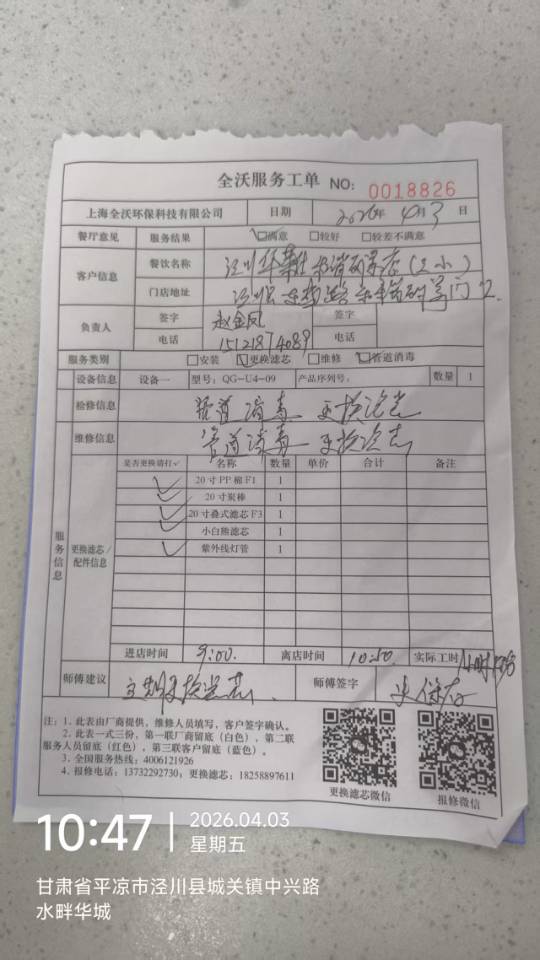 全沃服务工单 NO: 0018826
上海全沃环保科技有限公司 日期 2026年 4月 3 日
餐厅意见 服务结果 ☑满意 □较好 □较差不满意
客户信息 餐饮名称 泾川华莱士
门店地址 泾川县
负责人 签字 赵金凤 签字
电话 15121874089 电话
服务类别 □安装 ☑更换滤芯 □维修 ☑管道消毒
设备信息 设备一 型号：QG-U4-09 产品序列号： 数量 1
检修信息 管道消毒 更换滤芯
维修信息 管道消毒 更换滤芯
服务信息 更换滤芯/配件信息 是否更换请打✓ 名称 数量 单价 合计 备注
✓ 20寸PP棉F1 1
✓ 20寸炭棒 1
✓ 20寸叠式滤芯F3 1
✓ 小白熊滤芯 1
✓ 紫外线灯管 1
进店时间 9:00. 离店时间 10:50 实际工时
师傅建议 定期更换滤芯. 师傅签字
注：1. 此表由厂商提供，维修人员填写，客户签字确认。
2. 此表一式三份，第一联厂商留底（白色），第二联
服务人员留底（红色），第三联客户留底（蓝色）。
3. 全国服务热线：4006121926
4. 报修电话：13732292730，更换滤芯：18258897611
更换滤芯微信 报修微信
10:47 2026.04.03
星期五
甘肃省平凉市泾川县城关镇中兴路
水畔华城